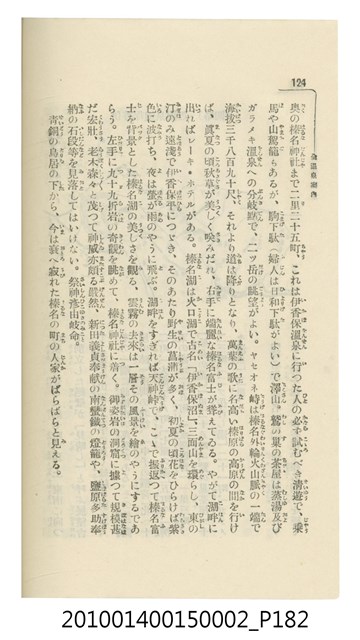 124
全温泉案内
奥の榛名神社まで二里二十五町。これは伊香保温泉に行つた人の必ず試むべき清遊で、乗
馬や山駕籠もあるが、駒下駄(婦人は日和下駄がよい)で澤山。鷲ノ巣の茶屋は蒸湯及び
ガラメキ温泉への分岐路で、二ツ岳の眺望がよい。ヤセオネ峠は榛名外輪火山脈の一端で
海抜三千八百九十尺、それより道は降りとなり、萬葉の歌に名高い榛原の高原の間を行け
ば、眞夏の頃秋草が美しく咲みだれ、右手に端麗な榛名富士が聳えてゐる。やがて湖畔に
出ればレーキ・ホテルがある。榛名湖は火口湖で古名「伊香保沼」、三面山を環らし、東の
汀のみ遠淺で伊香保平につゞき、そのあたり野生の菖蒲が多く、初夏の頃花をひらけば紫
色に波打ち、夜は螢が雨のやうに飛ぶ。湖畔をすぎれば天神峠で、ここで振返つて榛名富
士を背景とした榛名湖の美しさを觀る、雲霧の去來は一層その風景を繪のやうにするであ
らう。左手に九十九折岩の奇觀を眺めて、榛名神社に着く。御姿岩の洞窟に據つて規模甚
だ宏壯、老木森々と茂つて神威亦頗る嚴然、新田義貞奉獻の南蠻鐵の燈籠や、鹽原多助奉
納の石段等を見落してはいけない。祭神滿山岐命。
靑銅の鳥居の下から、今は衰へ寂れた榛名の町の人家がばらばらと見える。
201001400150002_P182